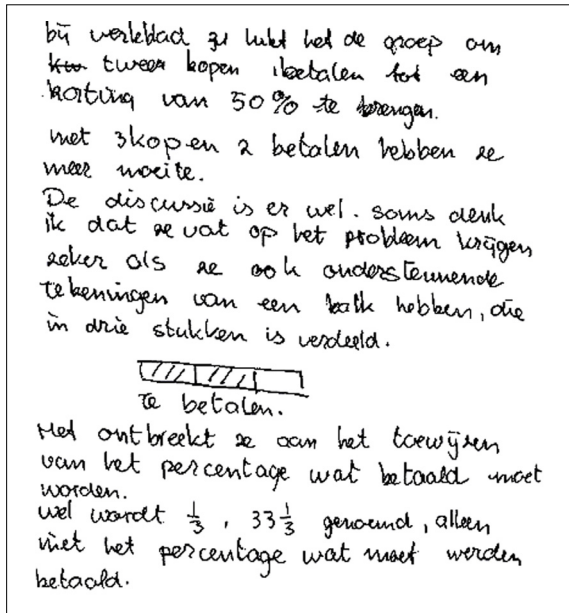 bij werkblad 3 lukt het de groep om
twee kopen 1 betalen tot een
korting van 50% te brengen.
met 3 kopen 2 betalen hebben ze
meer moeite.
De discussie is er wel. soms denk
ik dat ze vat op het probleem krijgen
zeker als ze ook ondersteunende
tekeningen van een balk hebben, die
in drie stukken is verdeeld.
te betalen.
Het ontbreekt ze aan het toewijzen
van het percentage wat betaald moet
worden.
wel wordt 1/3, 33 1/3 genoemd, alleen
niet het percentage wat moet werden
betaald.